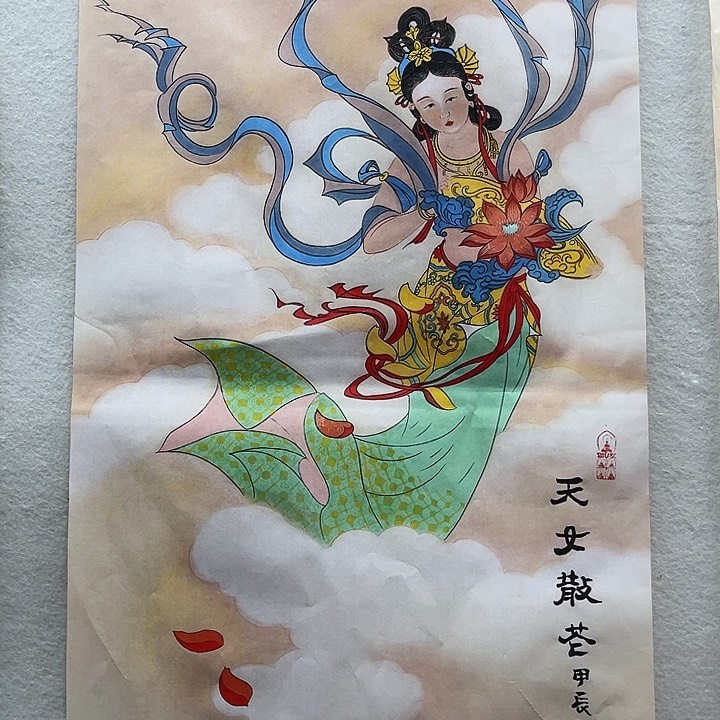 天女散花
甲辰